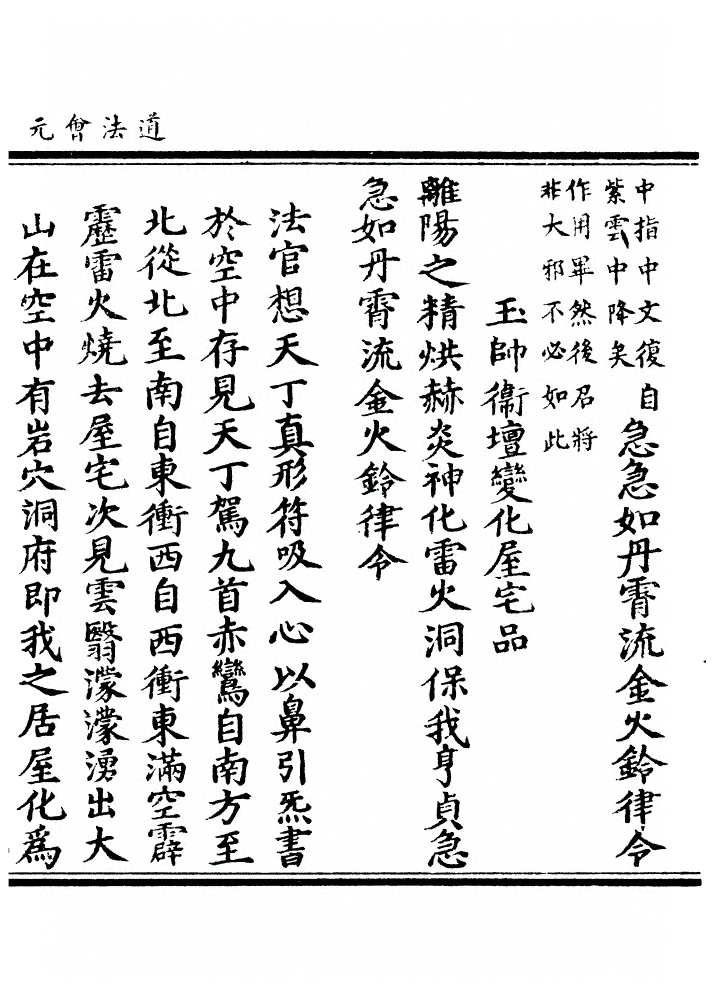 道法會元
中指中文復自
紫雲中降矣
急急如丹霄流金火鈴律令
作用畢然後召將
非大邪不必如此
玉帥衞壇變化屋宅品
離陽之精烘赫炎神化雷火洞保我亨貞急
急如丹霄流金火鈴律令
法官想天丁真形符吸入心以鼻引炁書
於空中存見天丁駕九首赤鸞自南方至
北從北至南自東衝西自西衝東滿空霹
靂雷火燒去屋宅次見雲翳濛濛湧出大
山在空中有岩穴洞府即我之居屋化爲